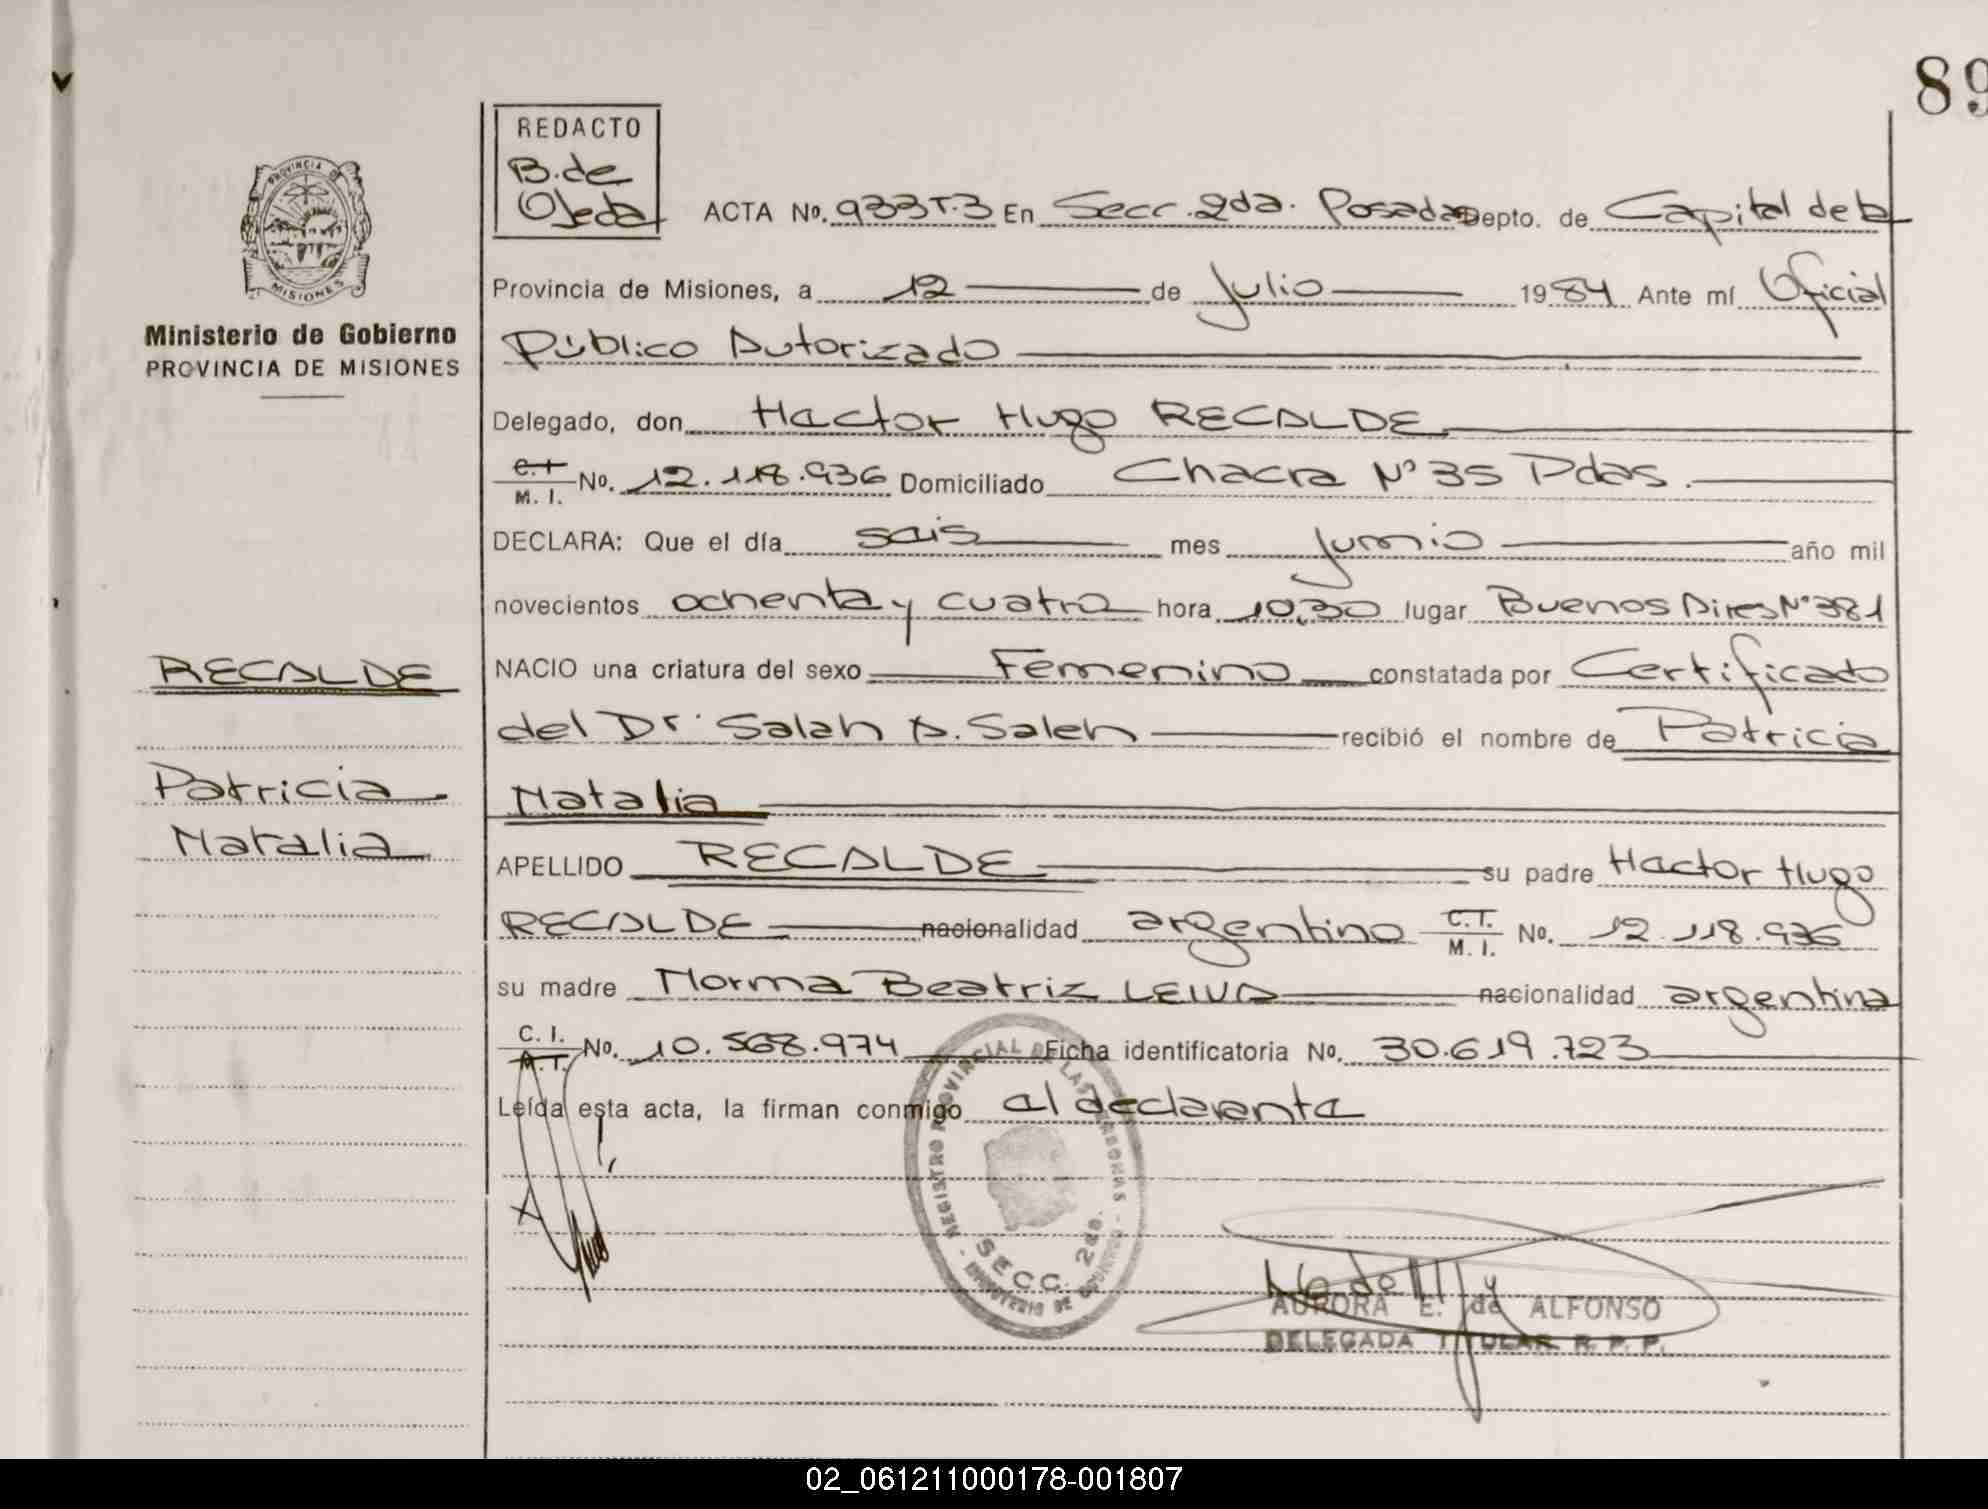 89
REDACTO
B. de
Ojeda
PROVINCIA DE
MISIONES
Ministerio de Gobierno
PROVINCIA DE MISIONES
ACTA No. 933 T.3 En Secc. 2da. Posadas Depto. de Capital de la
Provincia de Misiones, a 12 de Julio 1984 Ante mí Oficial
Público Autorizado
Delegado, don Hactor Hugo RECALDE
C.I. M. I. No. 12.118.936 Domiciliado Chacra Nº 35 Pdas.
DECLARA: Que el día sais mes Junio año mil
novecientos ochenta y cuatro hora 10,30 lugar Buenos Aires Nº 381
NACIO una criatura del sexo Femenino constatada por Certificado
del Dr. Salah A. Saleh recibió el nombre de Patricia
Natalia
APELLIDO RECALDE su padre Hactor Hugo
RECALDE nacionalidad argentino C.T. M. I. No. 12.118.936
su madre Norma Beatriz LEIVA nacionalidad argentina
C. I. M.T. No. 10.568.974 Ficha identificatoria No. 30.619.723
Leída esta acta, la firman conmigo al declaranta
RECALDE
Patricia
Natalia
REGISTRO PROVINCIAL DE LAS PERSONAS - MINISTERIO DE GOBIERNO -
SECC. 2da.
AURORA E. de ALFONSO
DELEGADA TITULAR R. P. P.
02_061211000178-001807